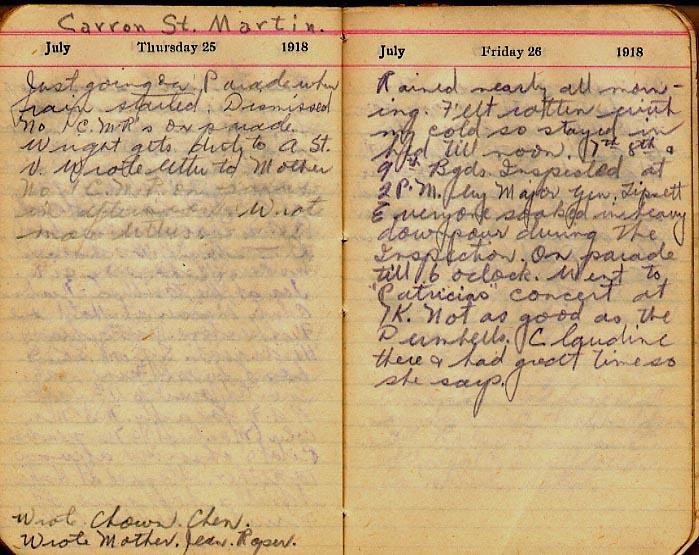 Carron St. Martin.
July Thursday 25 1918
Just going on Parade when
rain started. Dismissed
No 1 C.M.R's on parade.
Wright gets duty to A St.
V. Wrote letter to Mother
No 1 C.M.R. on parade
in afternoon. Wrote
Wrote Chown. Chen.
Wrote Mother. Jean. Roger.
July Friday 26 1918
Rained nearly all morn-
ing. Felt rotten with
my cold so stayed in
bed till noon. 7th 8th &
9th Bgds Inspected at
2 P.M. by Major Gen. Lipsett
Everyone soaked in heavy
down pour during the
Inspection. On parade
till 6 oclock. Went to
"Patricias" concert at
7K. Not as good as the
Dumbells. Claudine
there & had great time so
she says.